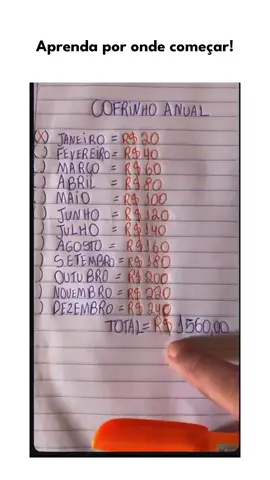 Aprenda por onde começar!
COFRINHO ANUAL
(X) JANEIRO = R$ 20
( ) FEVEREIRO = R$ 40
( ) MARÇO = R$ 60
( ) ABRIL = R$ 80
( ) MAIO = R$ 100
( ) JUNHO = R$ 120
( ) JULHO = R$ 140
( ) AGOSTO = R$ 160
( ) SETEMBRO = R$ 180
( ) OUTUBRO = R$ 200
( ) NOVEMBRO = R$ 220
( ) DEZEMBRO = R$ 240
TOTAL = R$ 1560,00